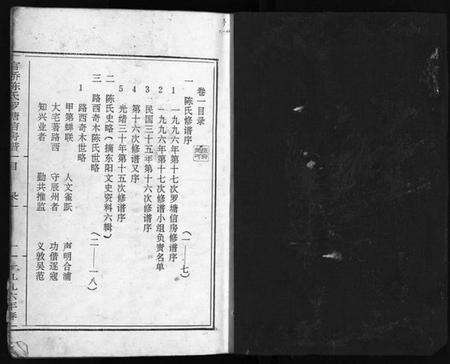 卷一目录
一 陈氏修谱序 (一——七)
1 一九九六年第十七次罗塘信房修谱序
2 一九九六年第十七次修谱小组负责名单
3 民国三十五年第十六次修谱序
4 第十六次修谱又序
5 光绪三十年第十五次修谱序
二 陈氏史略(摘东阳文史资料六辑)
三 路西奇木陈氏世略 (二——一八)
1 路西奇木世略
甲第蝉联 人文雀跃 声明合浦
大宅著路西 守辰州者 功僭逐寇
知兴业者 勤共推监 义敦吴范
目录